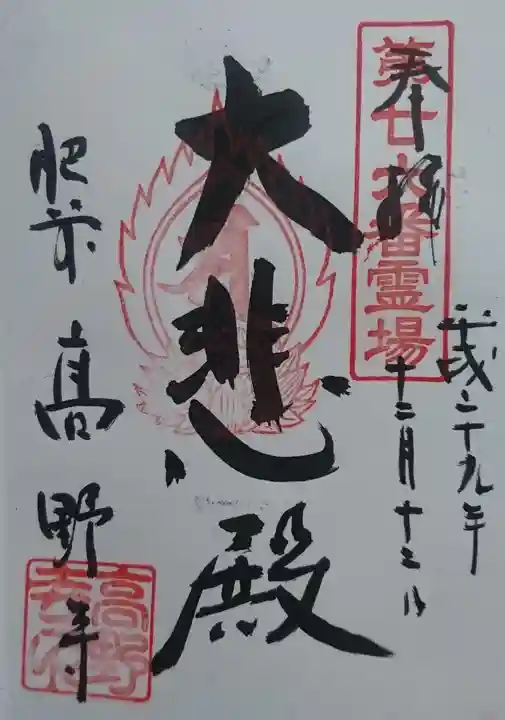 奉拝
第廿六番霊場
平成二十九年
十二月十三日
大悲殿
肥前 高野寺